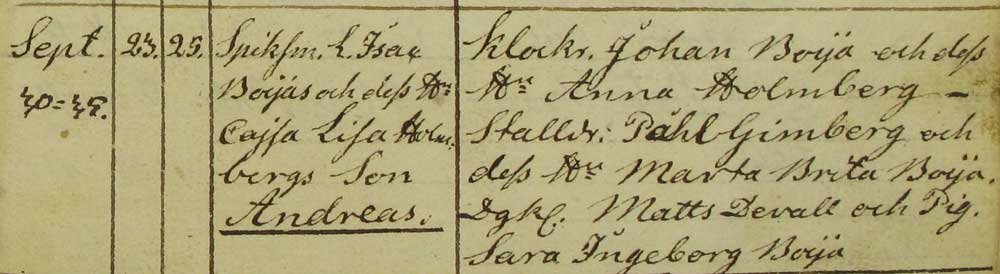 Sept. 23. 25. Spiksm. L. Isac
Boijäs och dess Hu
Cajsa Lisa Holm-
bergs Son
Andreas.
40=45.
Klockr. Johan Boijä och dess
Hu Anna Holmberg –
Stalldr: Påhl Gimberg och
dess Hu Marta Brita Boijä.
Dgkl. Matts Devall och Pig.
Sara Ingeborg Boijä